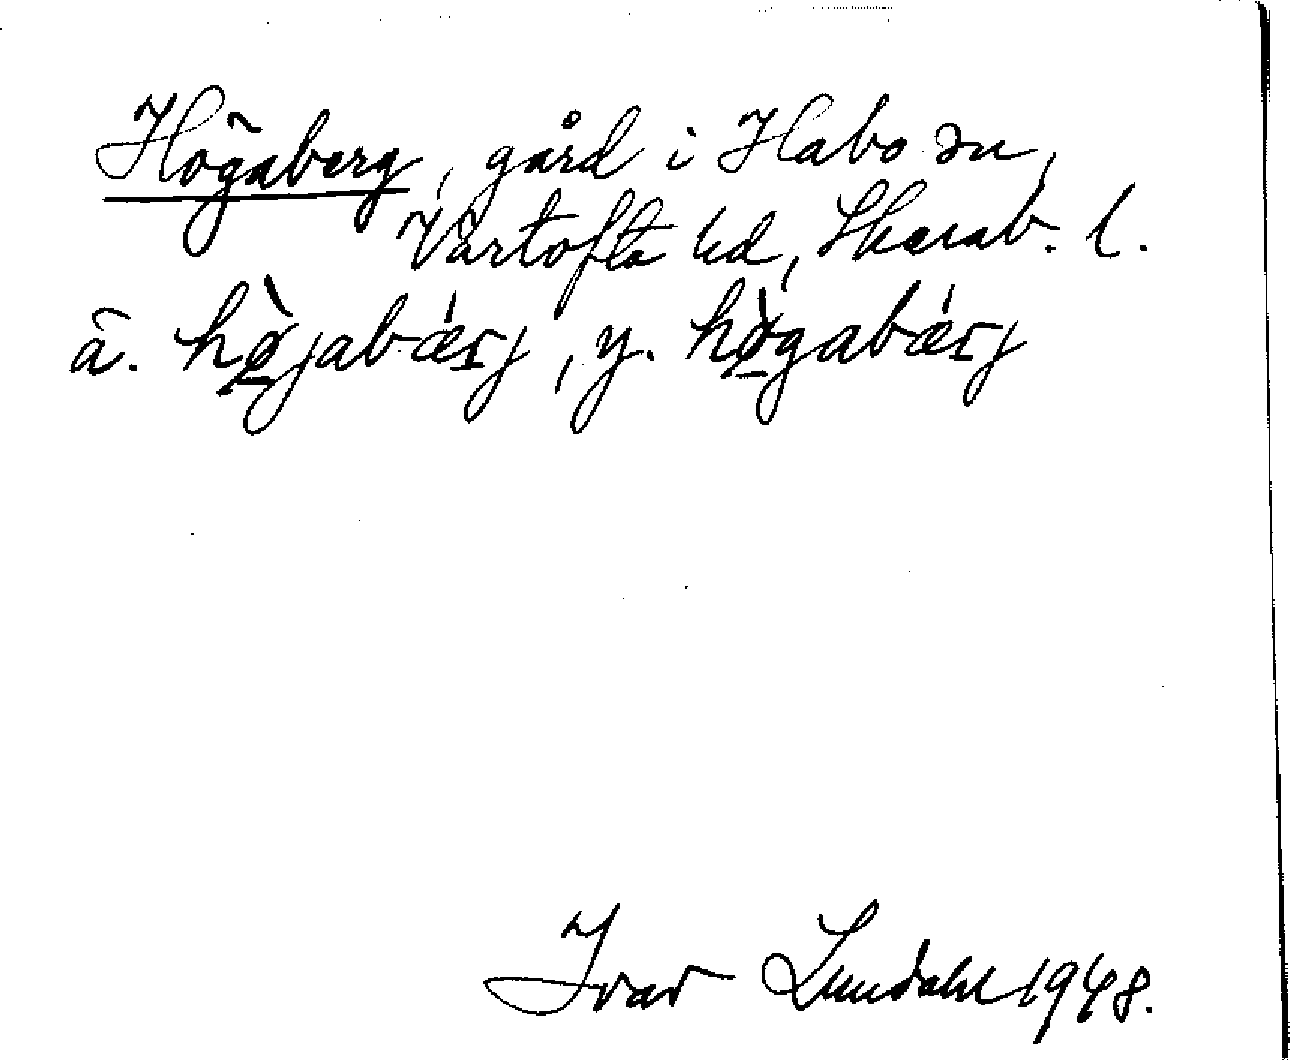 Högaberg, gård i Habo sn,
Vartofta hd, Skarab. l.
ä. hø̠̀jabǽrj, y. hø̠̀gabǽrj
Ivar Lundahl 1948.